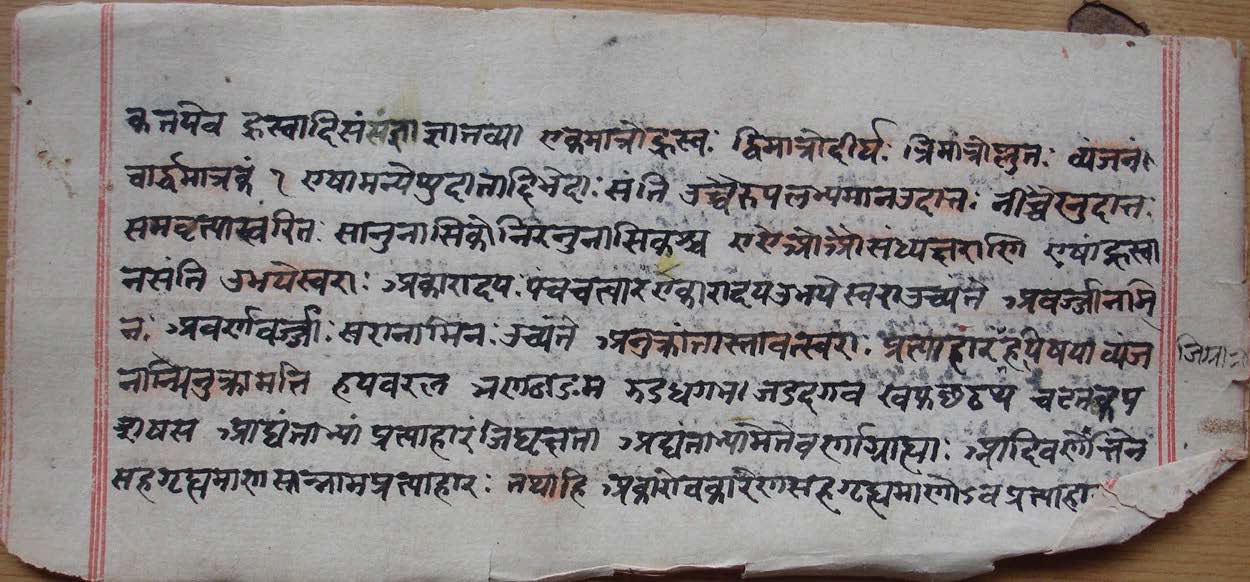 कतयेव ह्रस्वादिसंसंज्ञा ज्ञातव्या एकमात्रोह्रस्व: द्विमात्रोदीर्घ: त्रिमात्रोप्लुत: व्यंजनं
चार्द्धमात्रकं १ एषामन्येप्युदात्तादिभेदा: संति उच्चैरुपलभ्यमानउदात्त: नीचैरनुदात्त:
समवृत्यास्वरित: सानुनासिकोनिरनुनासिकश्च एऐओऔसंध्यक्षराणि एषांह्रस्वा
नसंति उभयेस्वरा: अकारादय: पंचचत्वारएकारादयउभयेस्वराउच्यंते अवर्ज्जानामि
न: अवर्णवर्ज्जा: स्वरानामिन: उच्यंते अनुक्रांतास्तावत्स्वरा: प्रत्याहारं व्यंज
नान्यनुक्रामति हयवरल ञणनङम झढधघभ जडदगब खफछठथ चटतकप
शषस आद्यंताभ्यां प्रत्याहारंजिघृक्षता आद्यंताभ्यामेतेवर्णाग्राह्या: आदिवर्णोंत्येन
सहगृह्यमाणस्तन्नामप्रत्याहार: तथाहि अकारोबकारेणसहगृह्यमाणोऽबप्रत्याहा